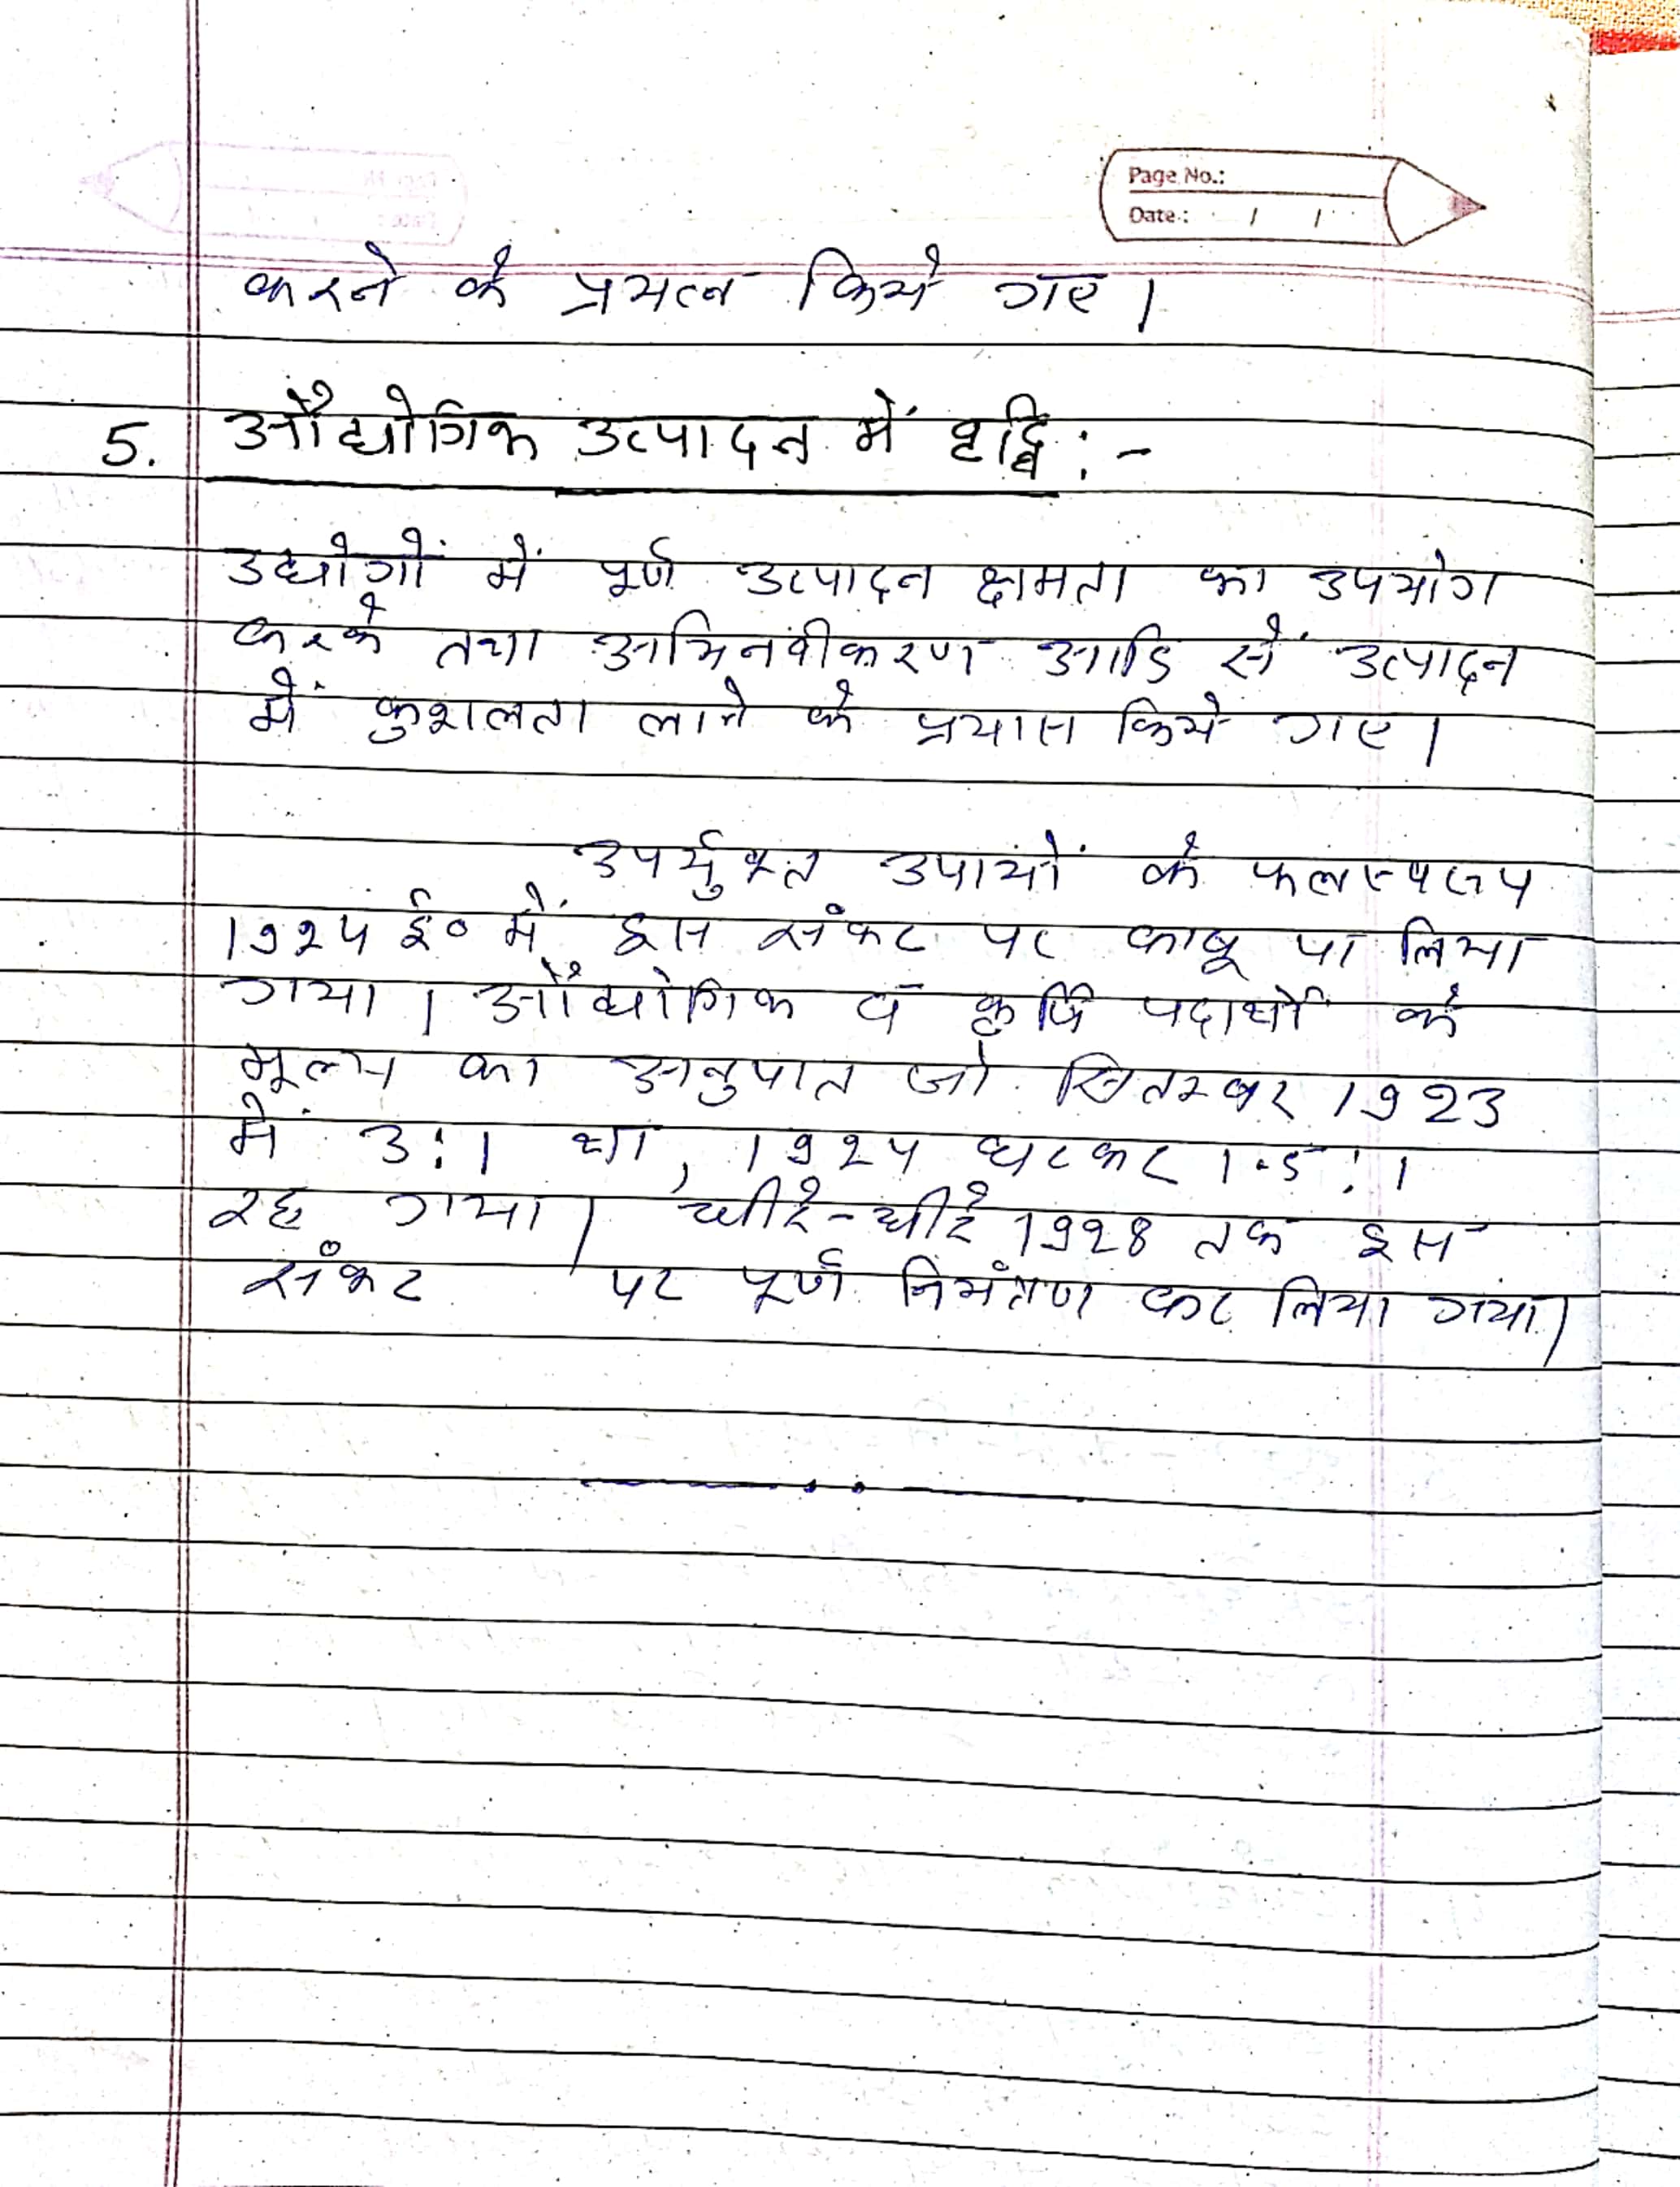 Page No.:
Date.: / /
करने के प्रयत्न किये गए।
5. औद्योगिक उत्पादन में वृद्धि :-
उद्योगों में पूर्ण उत्पादन क्षमता का उपयोग
करके तथा अभिनवीकरण आदि से उत्पादन
में कुशलता लाने के प्रयास किये गए।
उपर्युक्त उपायों के फलस्वरूप
1924 ई० में इस संकट पर काबू पा लिया
गया। औद्योगिक व कृषि पदार्थों के
मूल्य का अनुपात जो सितम्बर 1923
में 3:1 था, 1924 घटकर 1.5:1
रह गया। धीरे-धीरे 1928 तक इस
संकट पर पूर्ण नियंत्रण कर लिया गया।